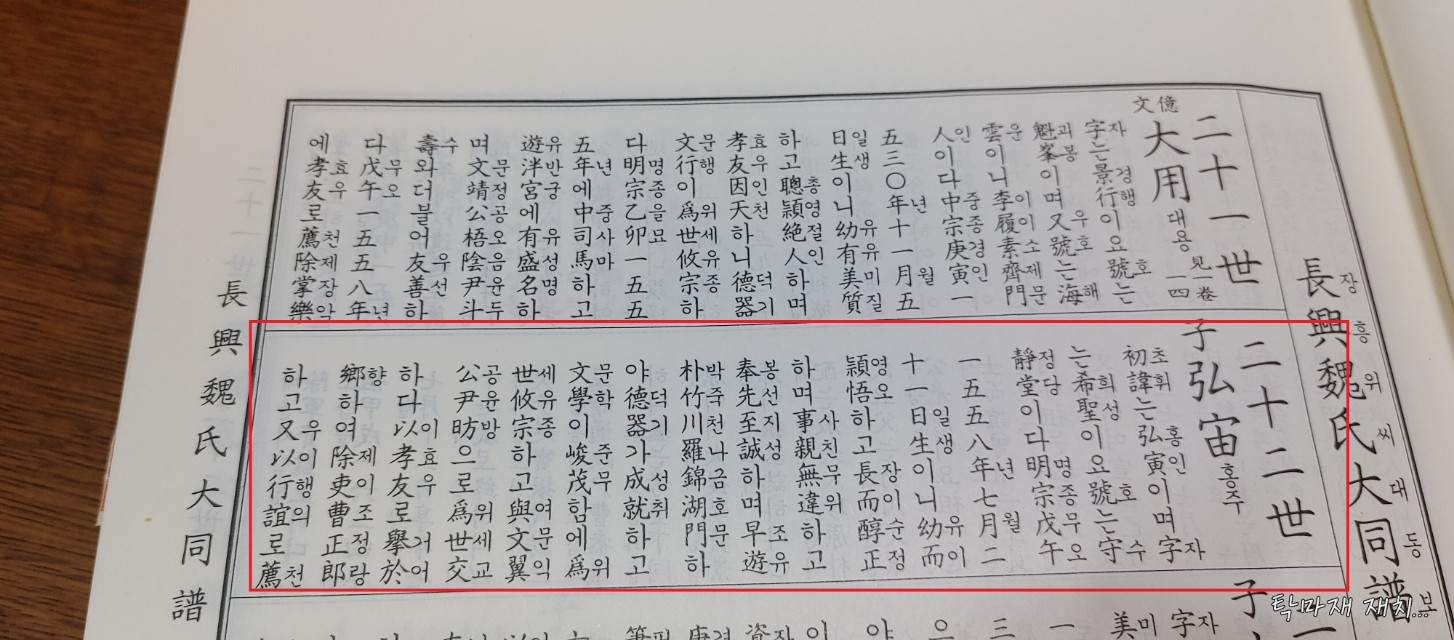 長興魏氏大同譜一
장흥위씨대동보
二十一世
文億
大用 대용 見卷一四
字는景行이요號는
자 경행 호
魁峯이며又號는海
괴봉 우호 해
雲이니李履素齊門
운 이이소제문
人이다中宗庚寅一
인 중종경인
五三〇年十一月五
년 월
日生이니幼有美質
일생 유유미질
하고聰穎絶人하며
총영절인
孝友因天하니德器
효우인천 덕기
文行이爲世攸宗하
문행 위세유종
다明宗乙卯一五五
명종을묘
五年에中司馬하고
년 중사마
遊泮宮에有盛名하
유반궁 유성명
며文靖公梧陰尹斗
문정공오음윤두
壽와더블어友善하
수 우선
다戊午一五五八年
무오 년
에孝友로薦除掌樂
효우 천제장악
二十二世
子弘宙 홍주
初諱는弘寅이며字
초휘 홍인 자
는希聖이요號는守
희성 호 수
靜堂이다明宗戊午
정당 명종무오
一五五八年七月二
년 월
十一日生이니幼而
일생 유이
穎悟하고長而醇正
영오 장이순정
하며事親無違하고
사친무위
奉先至誠하며早遊
봉선지성 조유
朴竹川羅錦湖門하
박죽천나금호문
야德器가成就하고
덕기 성취
文學이峻茂함에爲
문학 준무 위
世攸宗하고與文翼
세유종 여문익
公尹昉으로爲世交
공윤방 위세교
하다以孝友로擧於
이효우 거어
鄕하여除吏曹正郞
향 제이조정랑
하고又以行誼로薦
우이행의 천
子
字
자
美
미
長興魏氏大同譜
탁마재 재치...